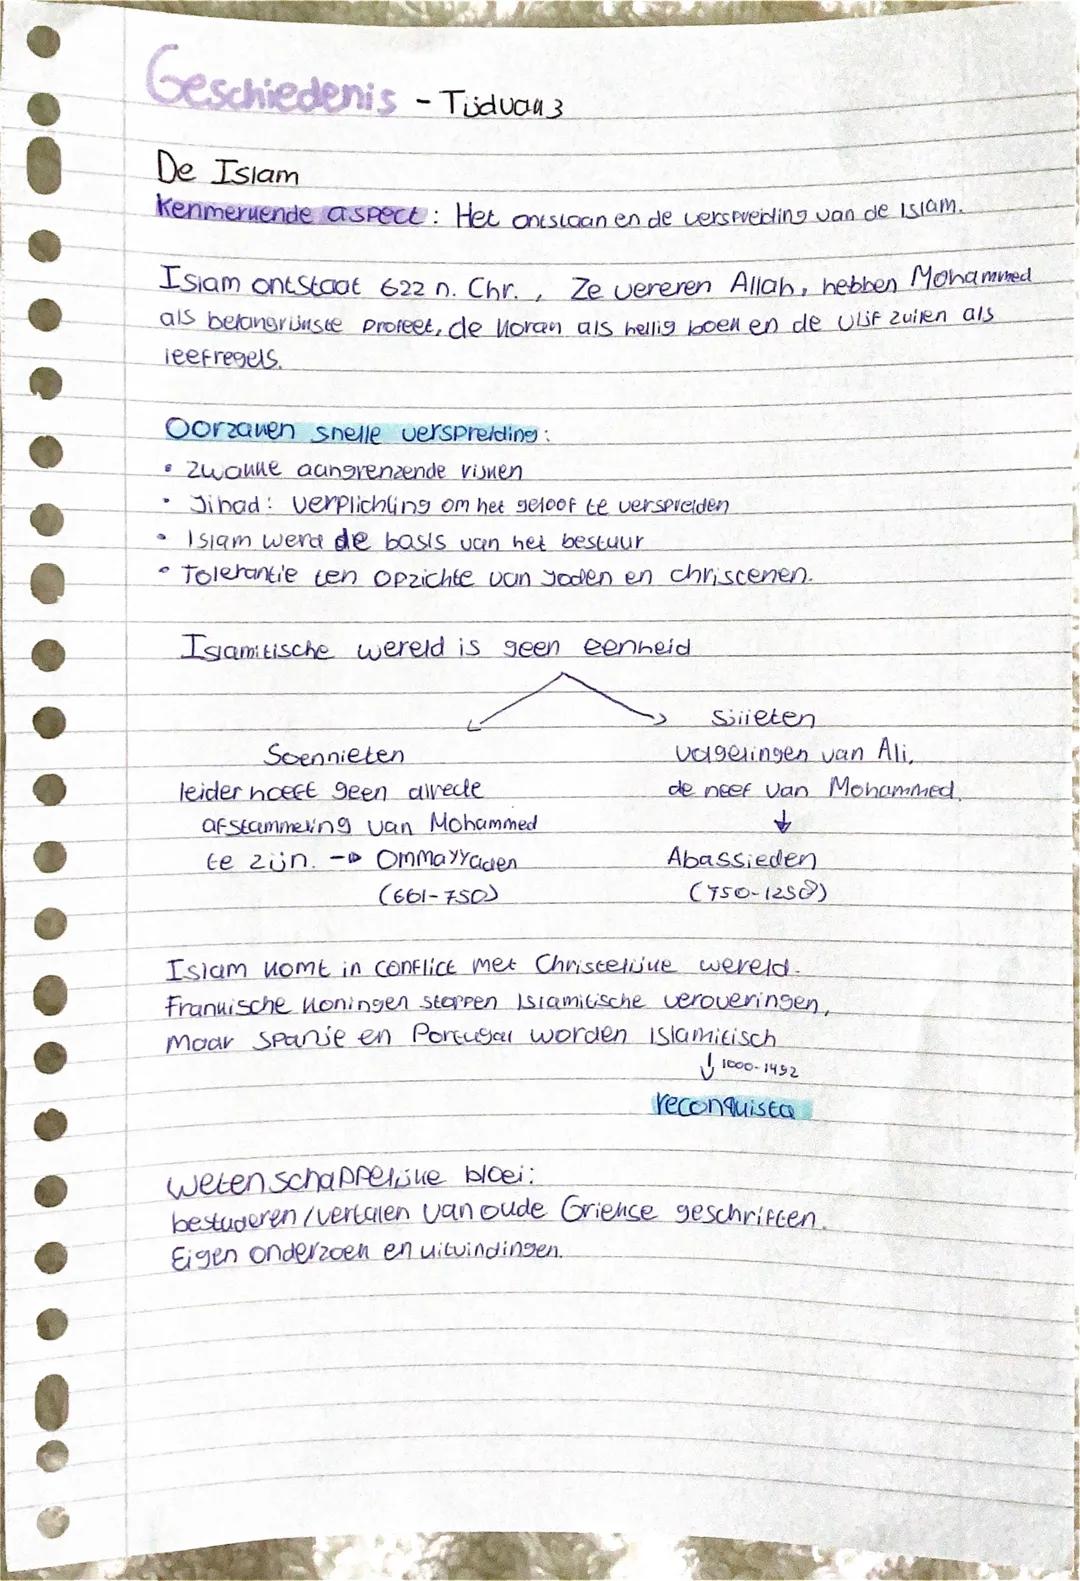 Geschiedenis - Tijdvak 3
De Islam
Kenmerkende aspect: Het ontstaan en de verspreiding van de islam.
Islam ontstaat 622 n. Chr., Ze vereren Allah, hebben Mohammed
als belangrijkste profeet, de koran als heilig boek en de vijf zuilen als
leefregels.
Oorzaken snelle verspreiding:
• Zwakke aangrenzende rijken
• Jihad: verplichting om het geloof te verspreiden
• Islam werd de basis van het bestuur
• Tolerantie ten opzichte van joden en christenen.
Islamitische wereld is geen eenheid
Sjiieten
Soennieten
volgelingen van Ali,
leider hoeft geen directe
de neef van Mohammed.
afstammeling van Mohammed
te zijn. → Ommayyaden
Abassieden
(661-750)
(750-1258)
Islam komt in conflict met Christelijke wereld.
Frankische koningen stoppen Islamitische veroveringen,
maar Spanje en Portugal worden islamitisch
↓ 1000-1492
reconquista
Wetenschappelijke bloei:
bestuderen/vertalen van oude Griekse geschriften.
Eigen onderzoek en uitvindingen.